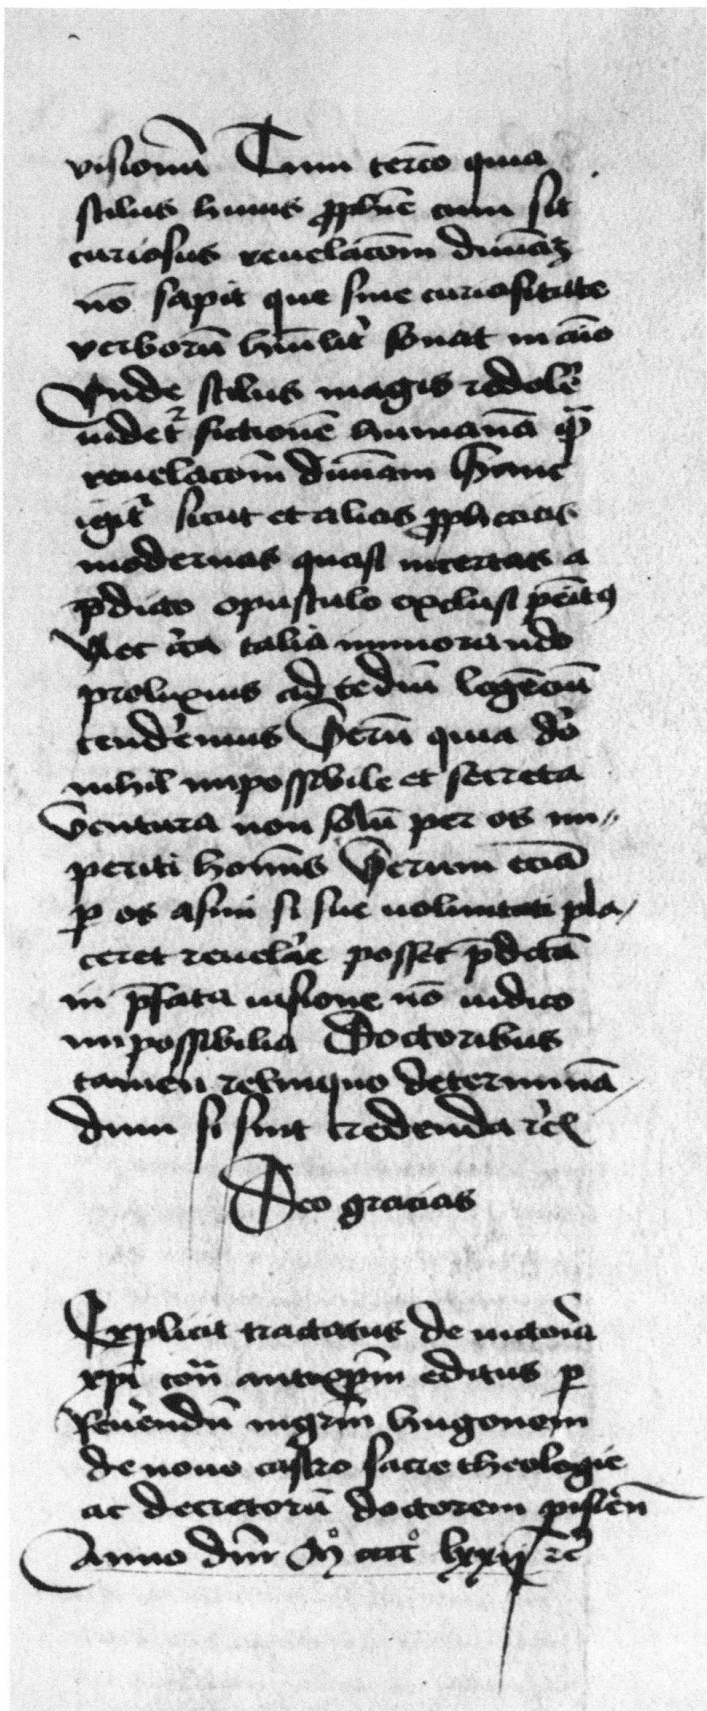 visionū Tum terc̄o quia
stilus huius ꝓph̄ie cum sit
curiosus reuelac̄om diuinā
nō sapit que sine curiositate
verborū hūilit̄ sonat in
Vnde stilus magis redolē
uidet̄ fictionē humanā q̄
reuelac̄om diuinam Hanc
igit̄ sicut et alias ꝓphecias
modernas quasi incertas a
p̄dicto opusculo exclusi pēitꝰ
Nec talia immorando
prolixius ad tediū legēciū
tend̄emus Verū quia dō
nihil impossibile et secreta
ventura non solū per os im-
periti hom̄is Verum eciā
ꝑ os asini si sue voluntati pla-
ceret reuelāe posset p̄dctā
in p̄fata uisione nō iudico
impossibilia Doctoribus
tamen relinquo determinā
dum si sint credenda
Deo gracias
Explicit tractatus de victoīa
xp̄i cōn̄ antixp̄m editus ꝑ
Reūendū mgr̄m hugonem
de nouo castro sacre theologie
ac decretorū doctorem
Anno dn̄i Mͦ cccͦ lxxij